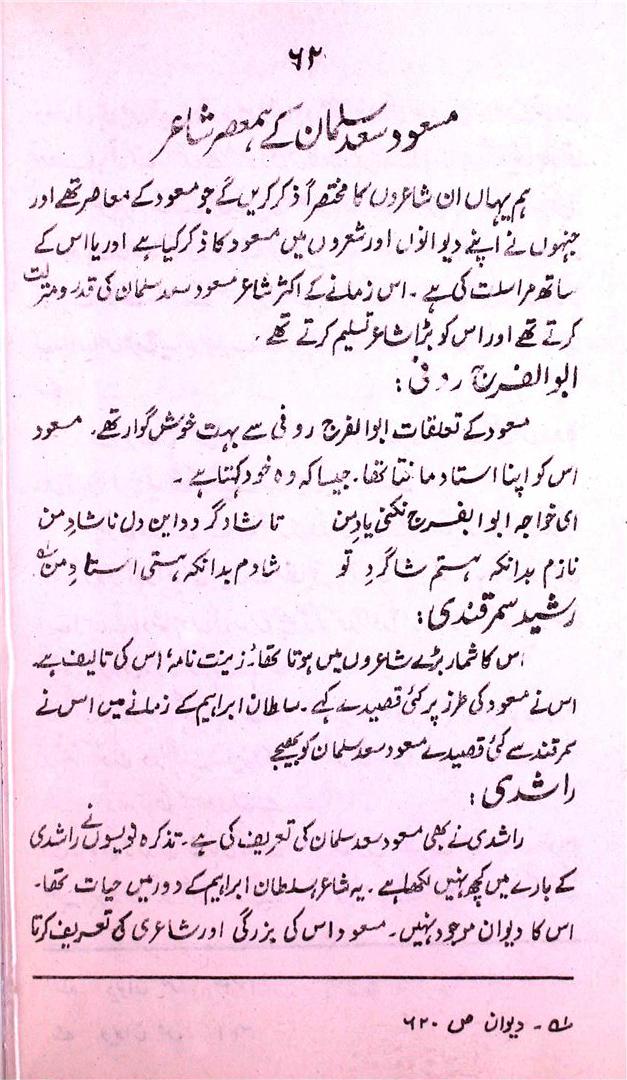 ۶۲
مسعود سعد سلمان کے ہمعصر شاعر
ہم یہاں ان شاعروں کا مختصراً ذکر کریں گے جو مسعود کے معاصر تھے اور
جنہوں نے اپنے دیوانوں اور شعروں میں مسعود کا ذکر کیا ہے اور یا اس کے
ساتھ مراسلت کی ہے۔ اس زمانے کے اکثر شاعر مسعود سعد سلمان کی قدر و منزلت
کرتے تھے اور اس کو بڑا شاعر تسلیم کرتے تھے۔
ابوالفرج رونی:
مسعود کے تعلقات ابوالفرج رونی سے بہت خوش گوار تھے۔ مسعود
اس کو اپنا استاد مانتا تھا۔ جیسا کہ وہ خود کہتا ہے۔
ای خواجہ ابوالفرج نکنی یادِ من تا شاد گردد این دل ناشادِ من
نازم بدانکہ ہستم شاگردِ تو شادم بدانکہ ہستی استادِ من ؎۱
رشید سمرقندی:
اس کا شمار بڑے شاعروں میں ہوتا تھا۔ زینت نامہ اس کی تالیف ہے۔
اس نے مسعود کی طرز پر کئی قصیدے کہے۔ سلطان ابراہیم کے زمانے میں اس نے
سمرقند سے کئی قصیدے مسعود سعد سلمان کو بھیجے
راشدی:
راشدی نے بھی مسعود سعد سلمان کی تعریف کی ہے۔ تذکرہ نویسوں نے راشدی
کے بارے میں کچھ نہیں لکھا ہے۔ یہ شاعر سلطان ابراہیم کے دور میں حیات تھا۔
اس کا دیوان موجود نہیں۔ مسعود اس کی بزرگی اور شاعری کی تعریف کرتا
؎۱۔ دیوان ص ۶۲۰